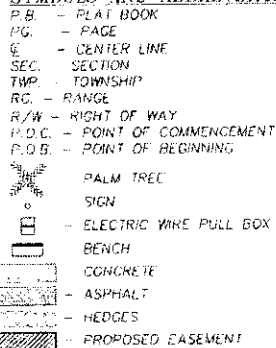 SYMBOLS AND ABBREVIATIONS
P.B. - PLAT BOOK
PG. - PAGE
℄ - CENTER LINE
SEC. - SECTION
TWP. - TOWNSHIP
RG. - RANGE
R/W - RIGHT OF WAY
P.O.C. - POINT OF COMMENCEMENT
P.O.B. - POINT OF BEGINNING
PALM TREE
SIGN
- ELECTRIC WIRE PULL BOX
BENCH
CONCRETE
- ASPHALT
- HEDGES
- PROPOSED EASEMENT